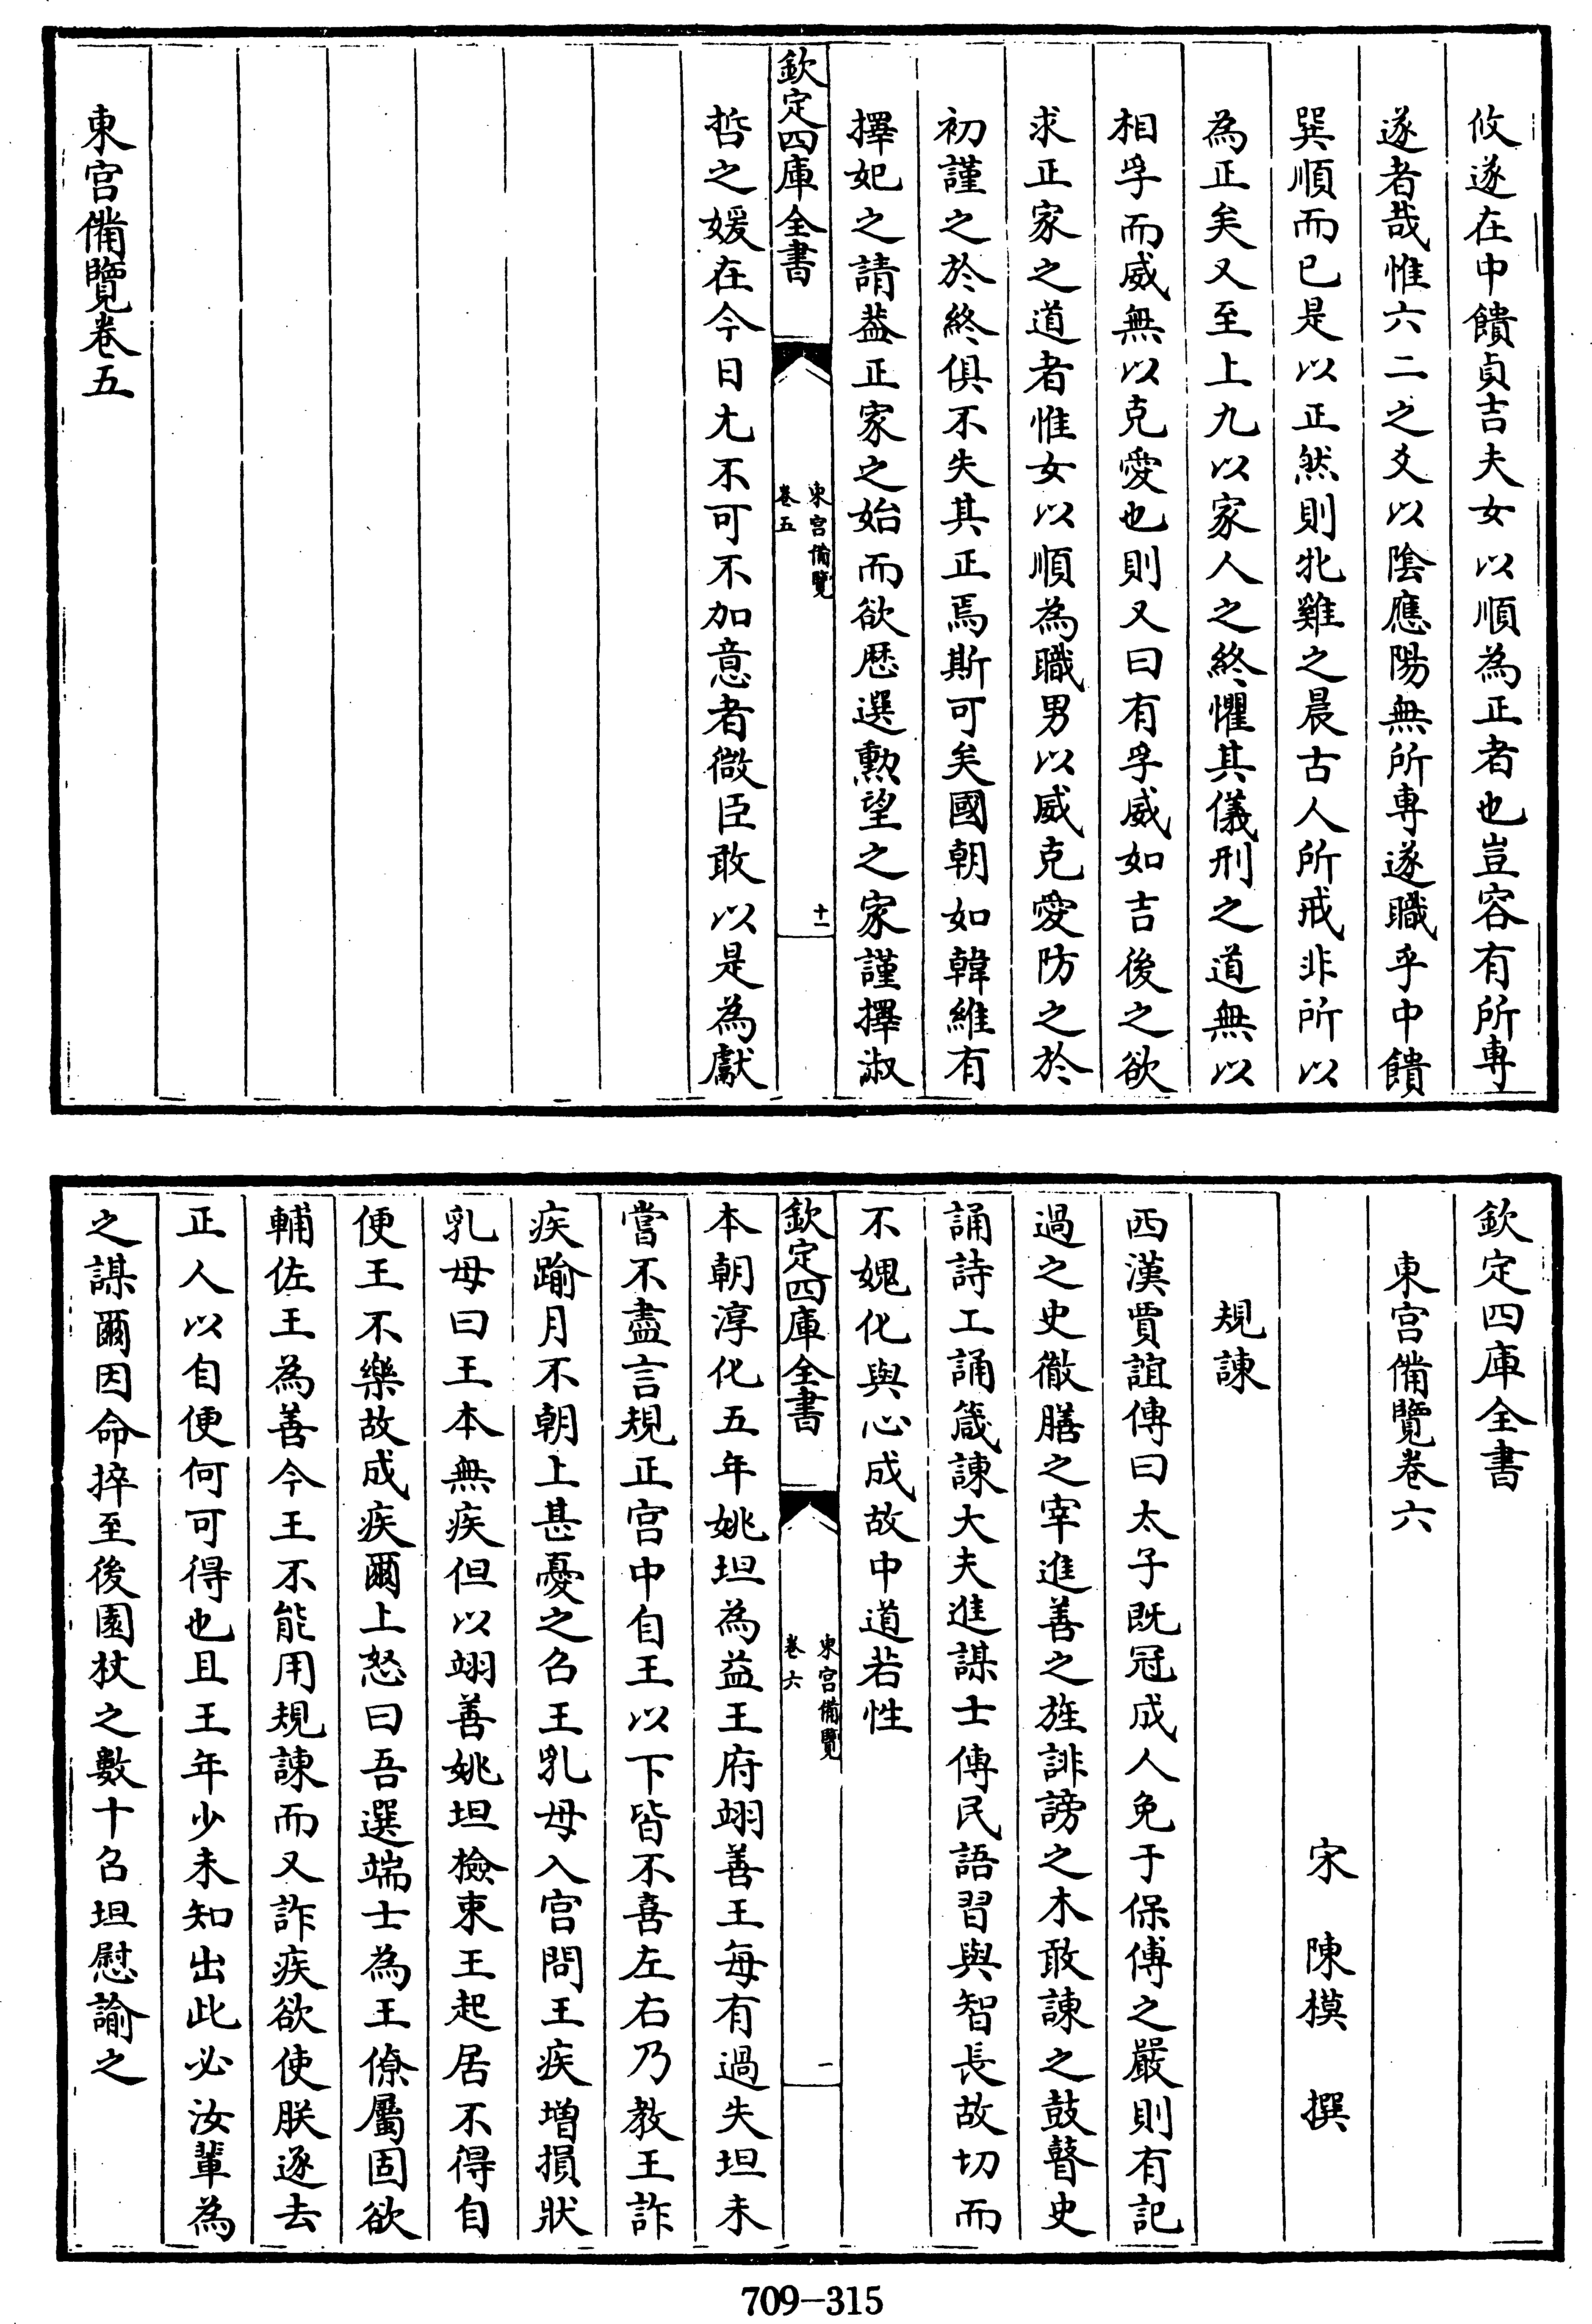 攸遂在中饋貞吉夫女以順為正者也豈容有所專
遂者哉惟六二之爻以陰應陽無所專遂職乎中饋
巽順而已是以正然則牝雞之晨古人所戒非所以
為正矣又至上九以家人之終懼其儀刑之道無以
相孚而威無以克愛也則又曰有孚威如吉後之欲
求正家之道者惟女以順為職男以威克愛防之於
初謹之於終俱不失其正焉斯可矣國朝如韓維有
擇妃之請葢正家之始而欲歴選勲望之家謹擇淑
欽定四庫全書
東宮備覽
卷五
十一
哲之媛在今日尤不可不加意者微臣敢以是為獻
東宮備覽卷五
欽定四庫全書
東宮備覽卷六
宋 陳模 撰
規諫
西漢賈誼傳曰太子既冠成人免于保傅之嚴則有記
過之史徹膳之宰進善之旌誹謗之木敢諫之鼓瞽史
誦詩工誦箴諫大夫進謀士傳民語習與智長故切而
不媿化與心成故中道若性
欽定四庫全書
東宮備覽
卷六
一
本朝淳化五年姚坦為益王府翊善王每有過失坦未
嘗不盡言規正宮中自王以下皆不喜左右乃教王詐
疾踰月不朝上甚憂之召王乳母入宮問王疾增損狀
乳母曰王本無疾但以翊善姚坦檢束王起居不得自
便王不樂故成疾爾上怒曰吾選端士為王僚屬固欲
輔佐王為善今王不能用規諫而又詐疾欲使朕逐去
正人以自便何可得也且王年少未知出此必汝輩為
之謀爾因命捽至後園杖之數十召坦慰諭之
709-315